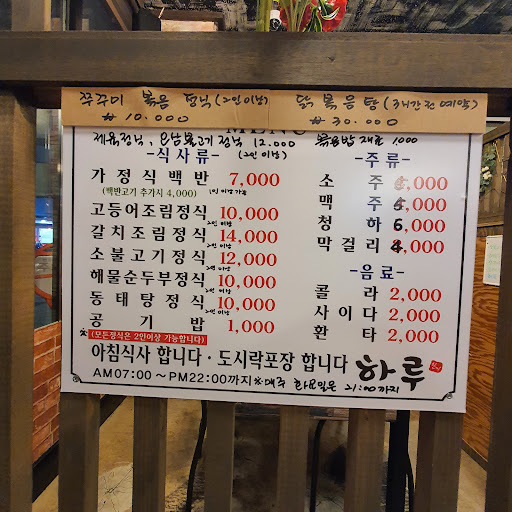 쭈꾸미 볶음 정식(2인이상) 닭볶음탕(3시간전 예약)
₩10.000 ₩30.000
MENU
제육정식, 12.000 볶음밥 1,000
-식사류- (2인이상)
가정식백반 7,000
(백반고기 추가시 4,000) 1인이상 가능
고등어조림정식 10,000
2인이상
갈치조림정식 14,000
2인이상
소불고기정식 12,000
2인이상
해물순두부정식 10,000
2인이상
동태탕정식 10,000
2인이상
공기밥 1,000
※(모든정식은 2인이상 가능합니다)
-주류-
소주 ,000
맥주 ,000
청하 6,000
막걸리 4,000
-음료-
콜라 2,000
사이다 2,000
환타 2,000
아침식사 합니다·도시락포장 합니다 하루
AM07:00~PM22:00까지 ※매주 화요일은 21:00까지